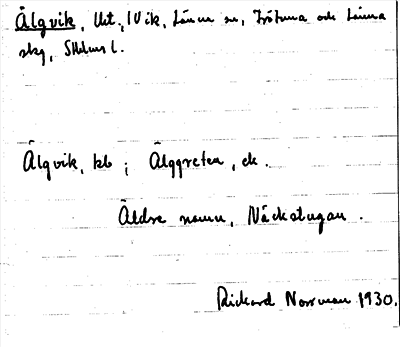 Älgvik, Ut., Vik, Länna sn, Frötuna och Länna
skg, Sthlms l.
Älgvik, kb ; Älggreten, ek.
Äldre namn, Näckstugan.
Rickard Norrman 1930.